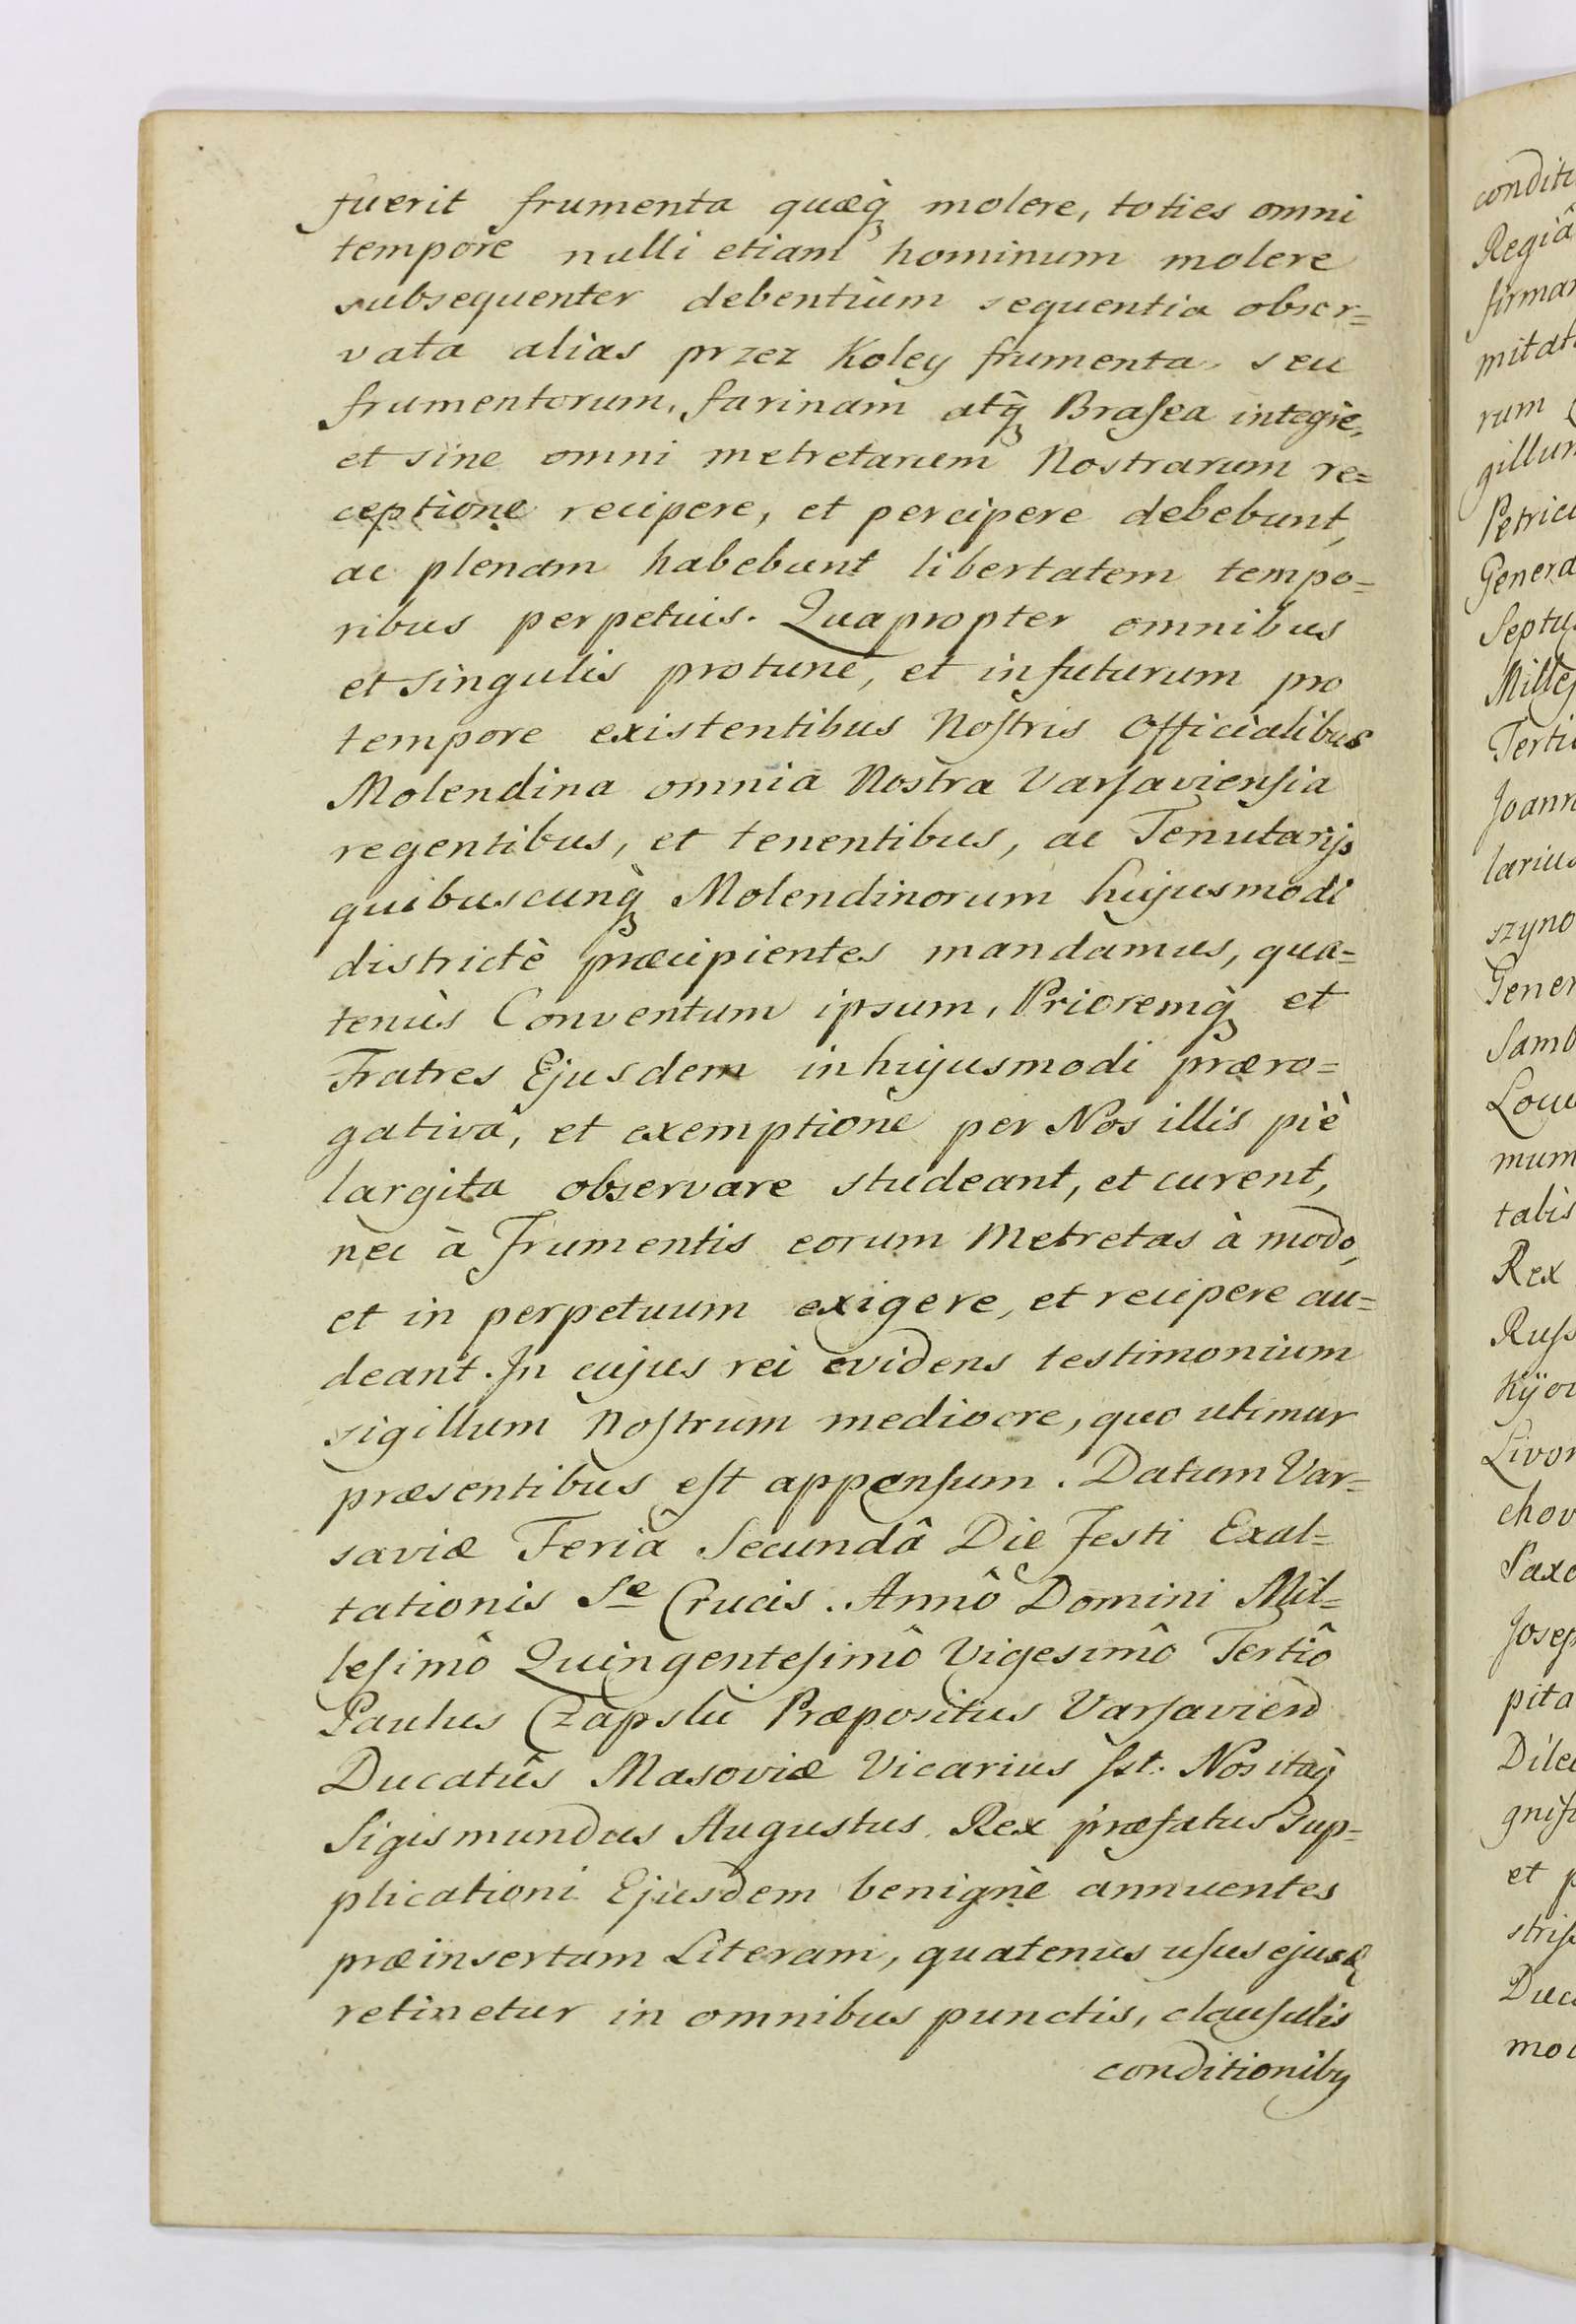 fuerit frumenta quæq̀ molere, toties omni
tempore nulli etiam hominum molere
subsequenter debentium sequentia obser=
vata alias przez Koley frumenta seu
frumentorum, farinam atq̀ Braſea integre,
et sine omni metretarum Nostrarum re=
ceptione recipere, et percipere debebunt,
ac plenam habebunt libertatem tempo=
ribus perpetuis. Quapropter omnibus
et singulis protunc, et infuturum pro
tempore existentibus Noſtris Officialibus
Molendina omnia Nostra Varſavienſia
regentibus, et tenentibus, ac Tenutarijs
quibuscunq̀ Molendinorum hujusmodi
districtè præcipientes mandamus, qua=
tenùs Conventum ipsum, Prioremq̀ et
Fratres Ejusdem in hujusmodi præro=
gativâ, et exemptione per Nos illis piè
largita observare studeant, et curent,
nec à Frumentis eorum Metretas à modo,
et in perpetuum exigere, et recipere au=
deant. In cujus rei evidens testimonium
sigillum Noſtrum mediocre, quo utimur
præsentibus eſt appenſum. Datum Var=
saviæ Feria Secundâ Die Festi Exal=
tationis Sᵉ Crucis. Annô Domini Mil=
leſimô Quingenteſimô Vigesimô Tertiô
Paulus Czapski Præpositus Varſavien
Ducatûs Masoviæ Vicarius ſst. Nos itaq̀
Sigismundus Augustus Rex præfatus Sup=
plicationi Ejusdem benignè annuentes
præinsertam Literam, quatenus uſus ejus
retinetur in omnibus punctis, clauſulis
conditioniby
conditi
Regiâ
firmar
mitat
rum
gillum
Petrico
Genera
Septu
Milleſ
Terti
Joann
larius
szyno
Gener
Samb
Lou
mum
talis
Rex
Ruſs
Kijo
Livon
chov
Saxo
Josep
pita
Dile
gniſ
et p
striſ
Duc
mo